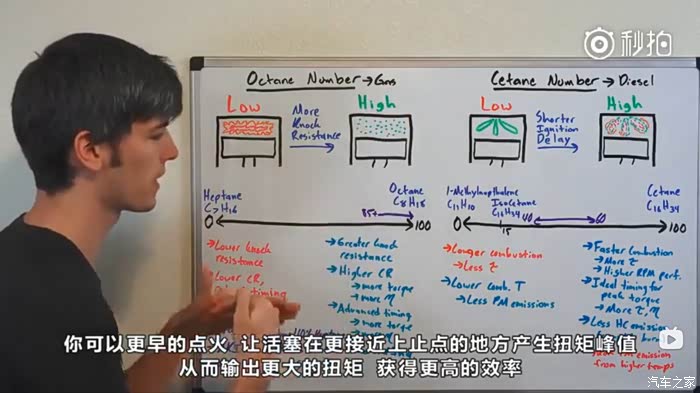 秒拍
Octane Number → Gas
Cetane Number → Diesel
Low
More
Knock
Resistance
High
Low
Shorter
Ignition
Delay
High
Heptane
C7H16
Octane
C8H18
85+
0
100
1-Methylnapthalene
C11H10
IsoCetane
C16H34
40
60
Cetane
C16H34
0
15
100
→ Lower knock
resistance
→ Lower CR,
timing
→ Greater knock
resistance
→ Higher CR
→ more torque
→ more η
→ Advanced timing
→ more torque
→ Longer combustion
→ Less τ
→ Lower Comb. T
→ Less PM emissions
→ Faster Combustion
→ More τ
→ Higher RPM perf.
→ Ideal timing for
peak torque
→ More τ, η
→ Less HC emission
burn
emission
from higher temps
你可以更早的点火 让活塞在更接近上止点的地方产生扭矩峰值
从而输出更大的扭矩 获得更高的效率
汽车之家